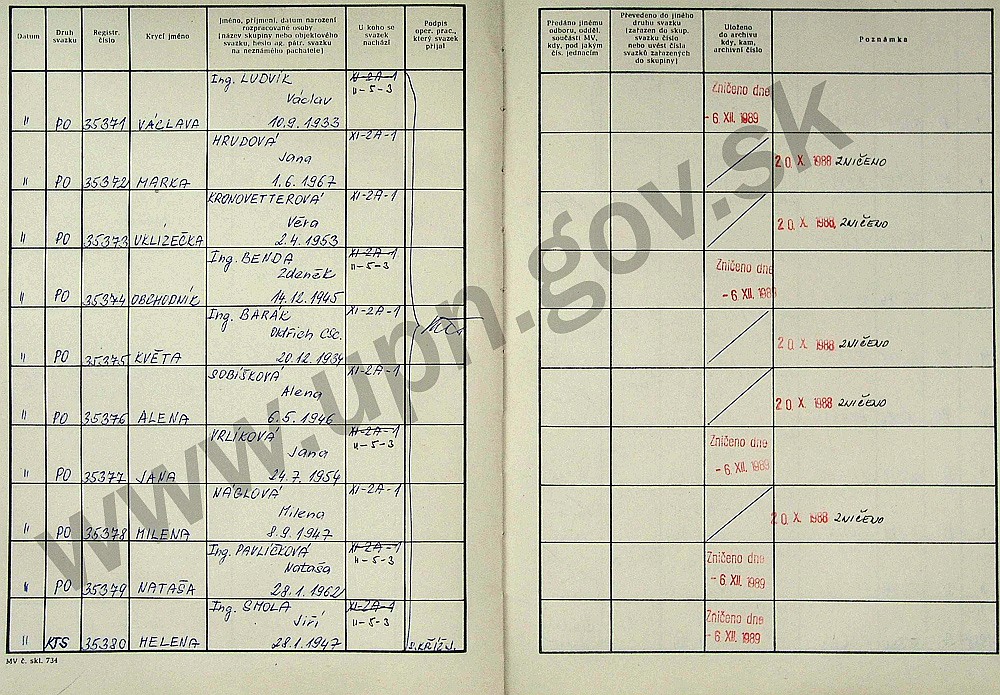 Datum
Druh svazku
Registr. číslo
Krycí jméno
Jméno, příjmení, datum narození
rozpracované osoby
(název skupiny nebo objektového
svazku, heslo ag. pátr. svazku
na neznámého pachatele)
U koho se
svazek
nachází
Podpis
oper. prac.,
který svazek
přijal
Předáno jinému
odboru, odděl.
součásti MV,
kdy, pod jakým
čís. jednacím
Převedeno do jiného
druhu svazku
(zařazen do skup.
svazku číslo
nebo uvést čísla
svazků zařazených
do skupiny)
Uloženo
do archivu
kdy, kam,
archivní číslo
Poznámka
Ing. LUDVÍK XI-2A-1
Václav II-5-3
" PO 35371 VÁCLAVA 10.9.1933
Zničeno dne
- 6. XII. 1989
HRUDOVÁ XI-2A-1
Jana
" PO 35372 MARKA 1.6.1967
20. X. 1988 ZNIČENO
KRONOVETTEROVÁ XI-2A-1
Věra
" PO 35373 UKLÍZEČKA 2.4.1953
20. X. 1988 ZNIČENO
Ing. BENDA XI-2A-1
Zdeněk II-5-3
" PO 35374 OBCHODNÍK 14.12.1945
Zničeno dne
- 6. XII. 1989
Ing. BARÁK XI-2A-1
Oldřich CSc.
" PO 35375 KVĚTA 20.12.1934
20. X. 1988 ZNIČENO
SOBÍŠKOVÁ XI-2A-1
Alena
" PO 35376 ALENA 6.5.1946
20. X. 1988 ZNIČENO
VRLÍKOVÁ XI-2A-1
Jana II-5-3
" PO 35377 JANA 24.7.1954
Zničeno dne
- 6. XII. 1989
NÁGLOVÁ XI-2A-1
Milena
" PO 35378 MILENA 8.9.1947
20. X. 1988 ZNIČENO
Ing. PAVLÍČKOVÁ XI-2A-1
Nataša II-5-3
" PO 35379 NATAŠA 28.1.1962
Zničeno dne
- 6. XII. 1989
Ing. SMOLA XI-2A-1
Jiří II-5-3
" KTS 35380 HELENA 28.1.1947 KŘÍŽ J.
Zničeno dne
- 6. XII. 1989
MV č. skl. 734
www.upn.gov.sk